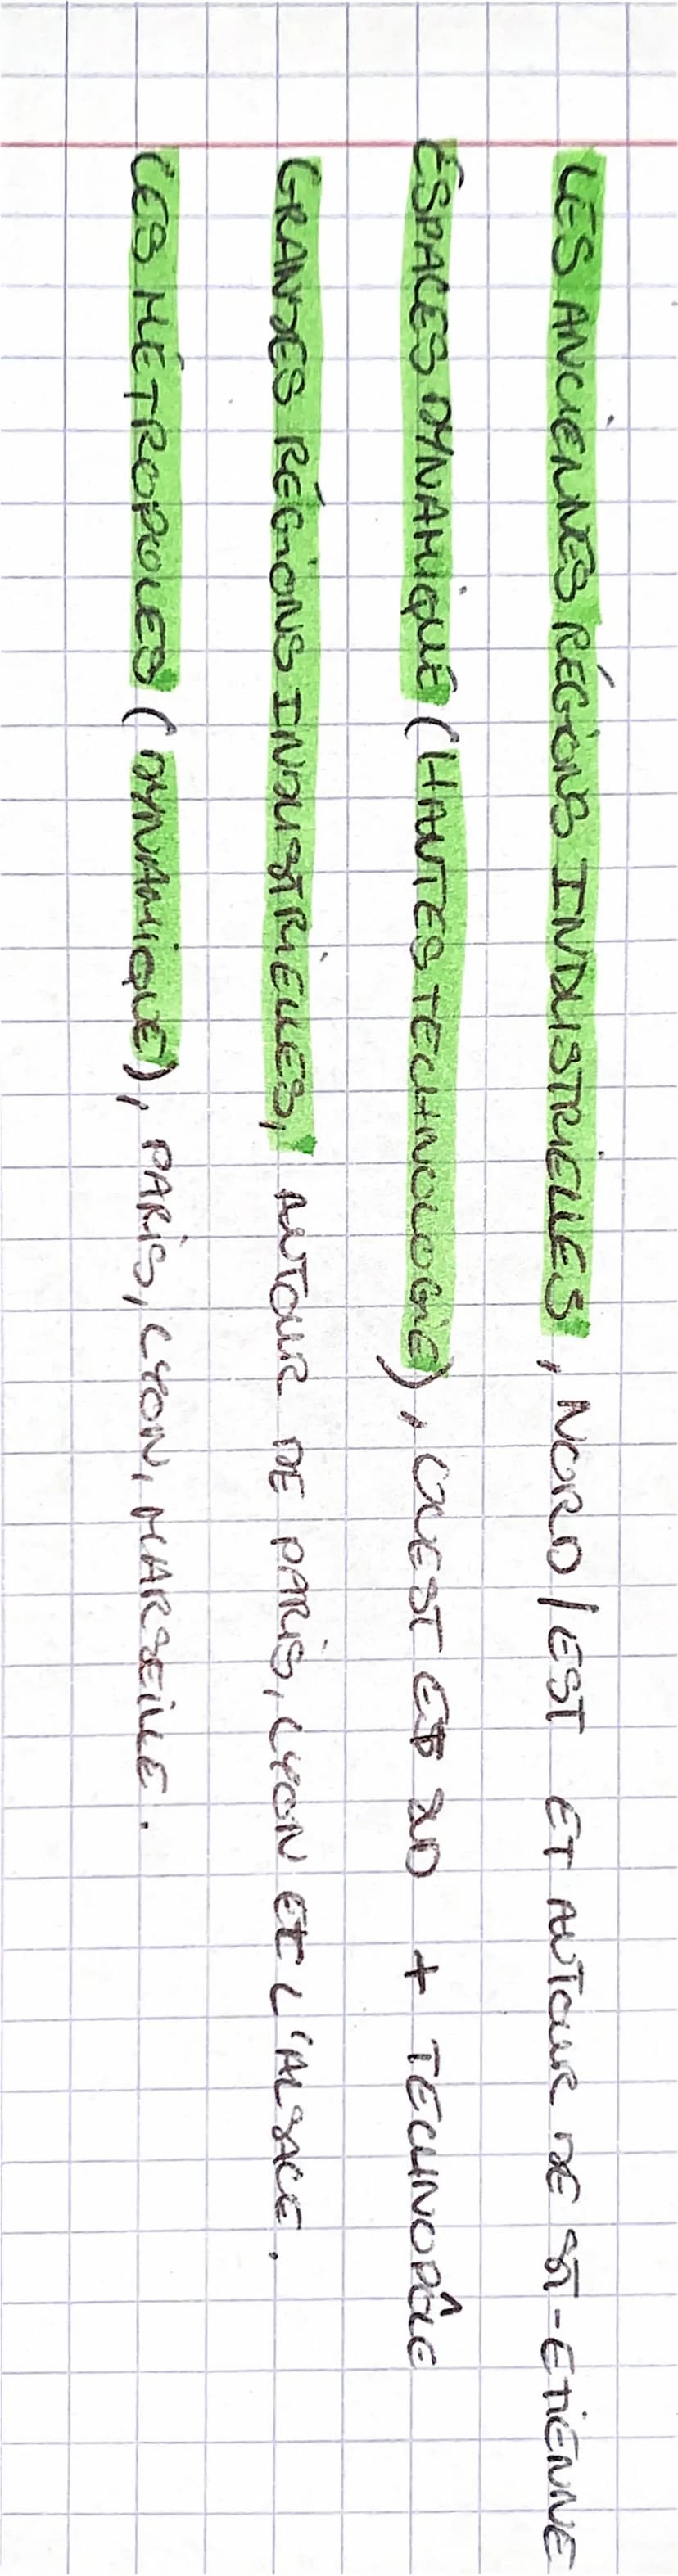 LES ANCIENNES RÉGIONS INDUSTRIELLES, NORD/EST ET AUTOUR DE ST-ETIENNE
ESPACES DYNAMIQUE (HAUTES TECHNOLOGIE), OUEST ET SUD + TECHNOPÔLE
GRANDES RÉGIONS INDUSTRIELLES, AUTOUR DE PARIS, LYON ET L'ALSACE.
LES MÉTROPOLES (DYNAMIQUE), PARIS, LYON, MARSEILLE.